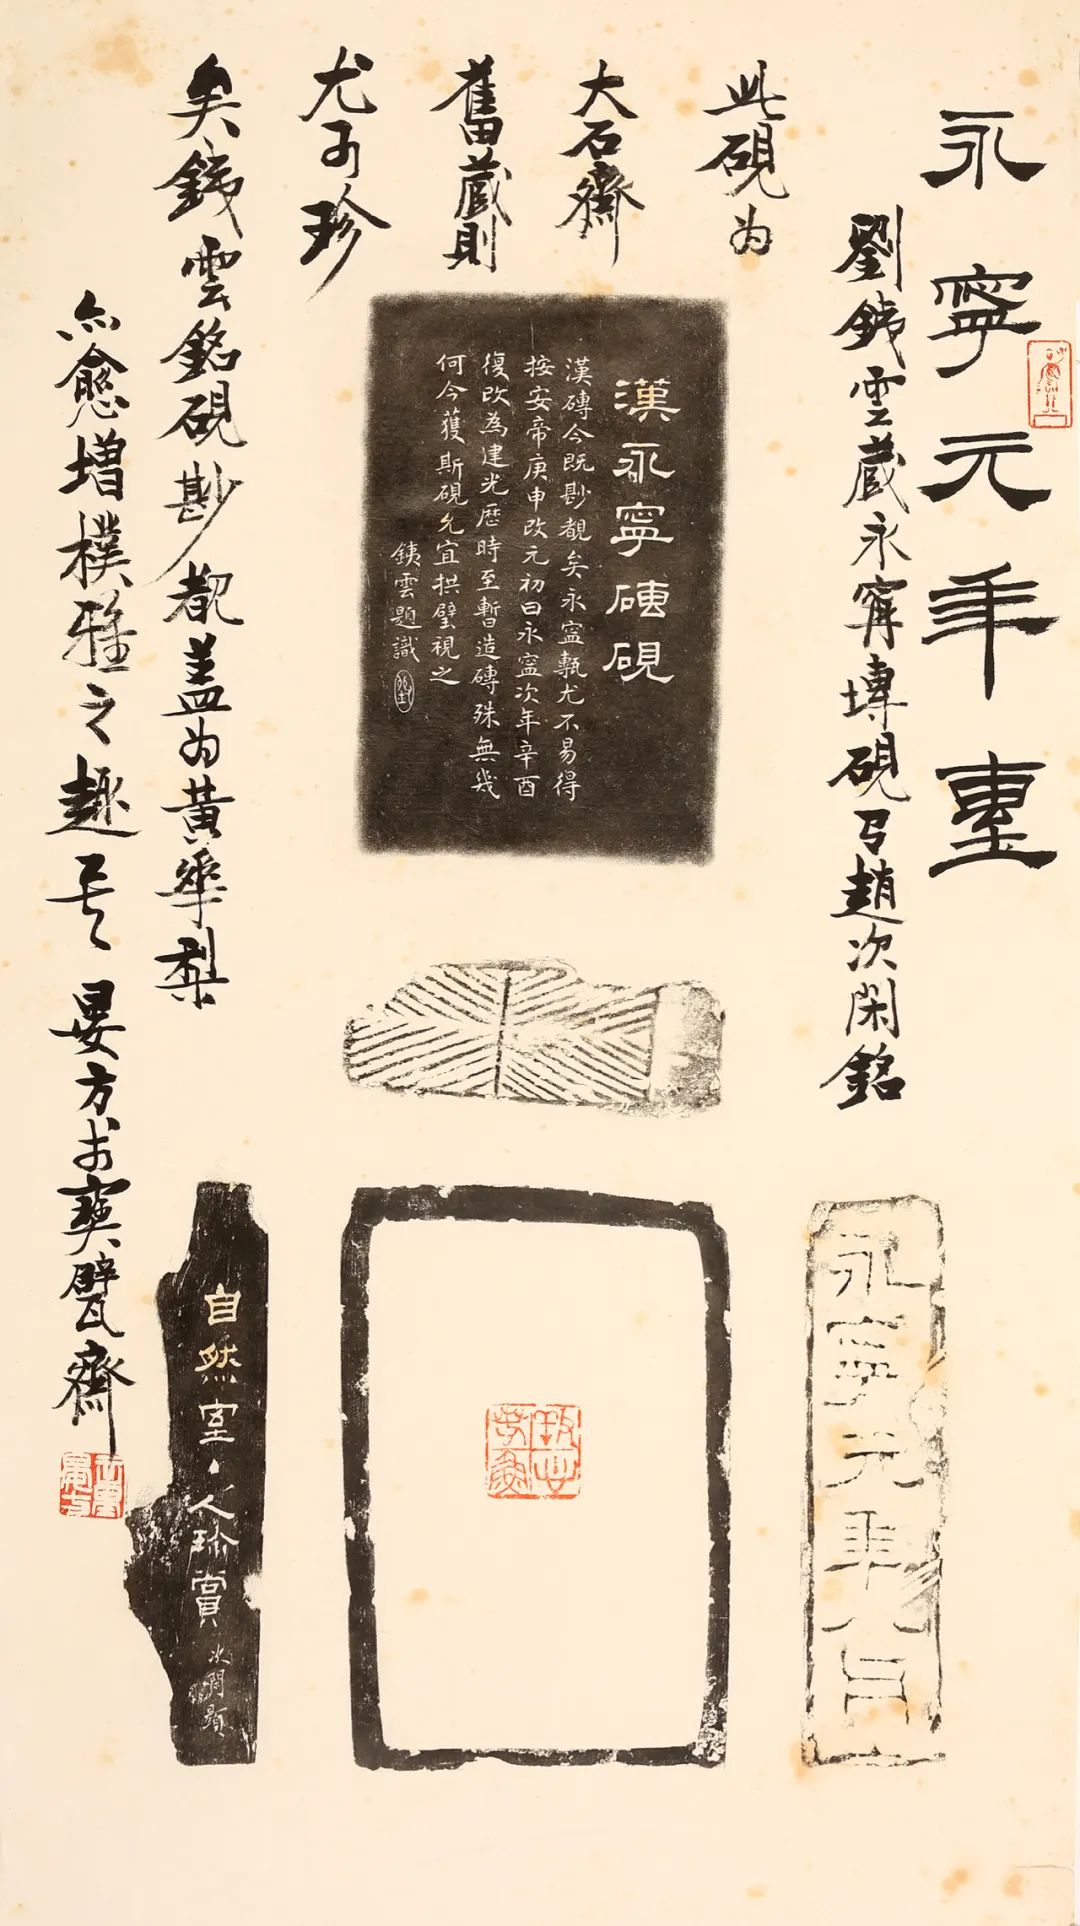 永寧元年
劉銕雲藏永甯塼硯 趙次閑銘
此硯为
大石齋
舊藏則
尤可珍
矣銕雲銘硯尠覩盖为黄華梨
亦愈增樸雅之趣 晏方於寶甓齋
漢永寧磚硯
漢磚今既尠覩矣永寍甎尤不易得
按安帝庚申改元初曰永寍次年辛酉
復改為建光歴時至暫造磚殊無幾
何今獲斯硯允宜拱璧視之
銕雲題識
永寧元年八
自然室丶人珎賞
次閑題